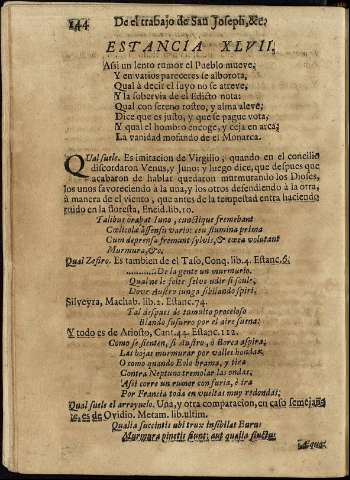 144 De el trabajo de San Joseph, &c.
ESTANCIA XLVII.
Assi un lento rumor el Pueblo mueve,
Y en varios pareceres se alborota,
Qual à decir el suyo no se atreve,
Y la sobervia de el Edicto nota:
Qual con sereno rostro, y alma aleve,
Dice que es justo, y que se pague vota,
Y qual el hombro encoge, y ceja en arca,
La vanidad mofando de el Monarca.
QUal suele. Es imitacion de Virgilio, quando en el concilio
discordaron Venus, y Juno; y luego dice, que despues que
acabaron de hablar quedaron murmurando los Dioses,
los unos favoreciendo à la una, y los otros defendiendo à la otra,
à manera de el viento, que antes de la tempestad entra haciendo
ruido en la floresta, Eneid. lib. 10.
Talibus orabat Iuno, cunctique fremebant
Cœlicolæ assensu vario: ceu flamina prima
Cum deprensa fremunt sylvis, & cæca volutant
Murmura, &c.
Qual Zefiro. Es tambien de el Taso, Conq. lib. 4. Estanc. 6.
De la gente un murmurio.
Qual ne le
Silveyra, Machab. lib. 2. Estanc. 74.
Tal despues de tumulto proceloso
Blando susurro por el aire suena:
Y todo es de Ariosto, Cant. 44. Estanc. 112.
Como se sienten, si Austro, ò Borea aspira,
Las hojas murmurar por valles hondas,
O como quando Eolo brama, y tira
Contra Neptuno tremolar las ondas,
Asi corre un rumor con furia, è ira
Por Francia toda en vueltas muy redondas:
Qual suele el arroyuelo. Una, y otra comparacion, en caso semejan-
te, es de Ovidio. Metam. lib. ultim.
Qualia succintis ubi trux insibilat Eurus
Murmura pinetis fiunt: aut qualia fluctus